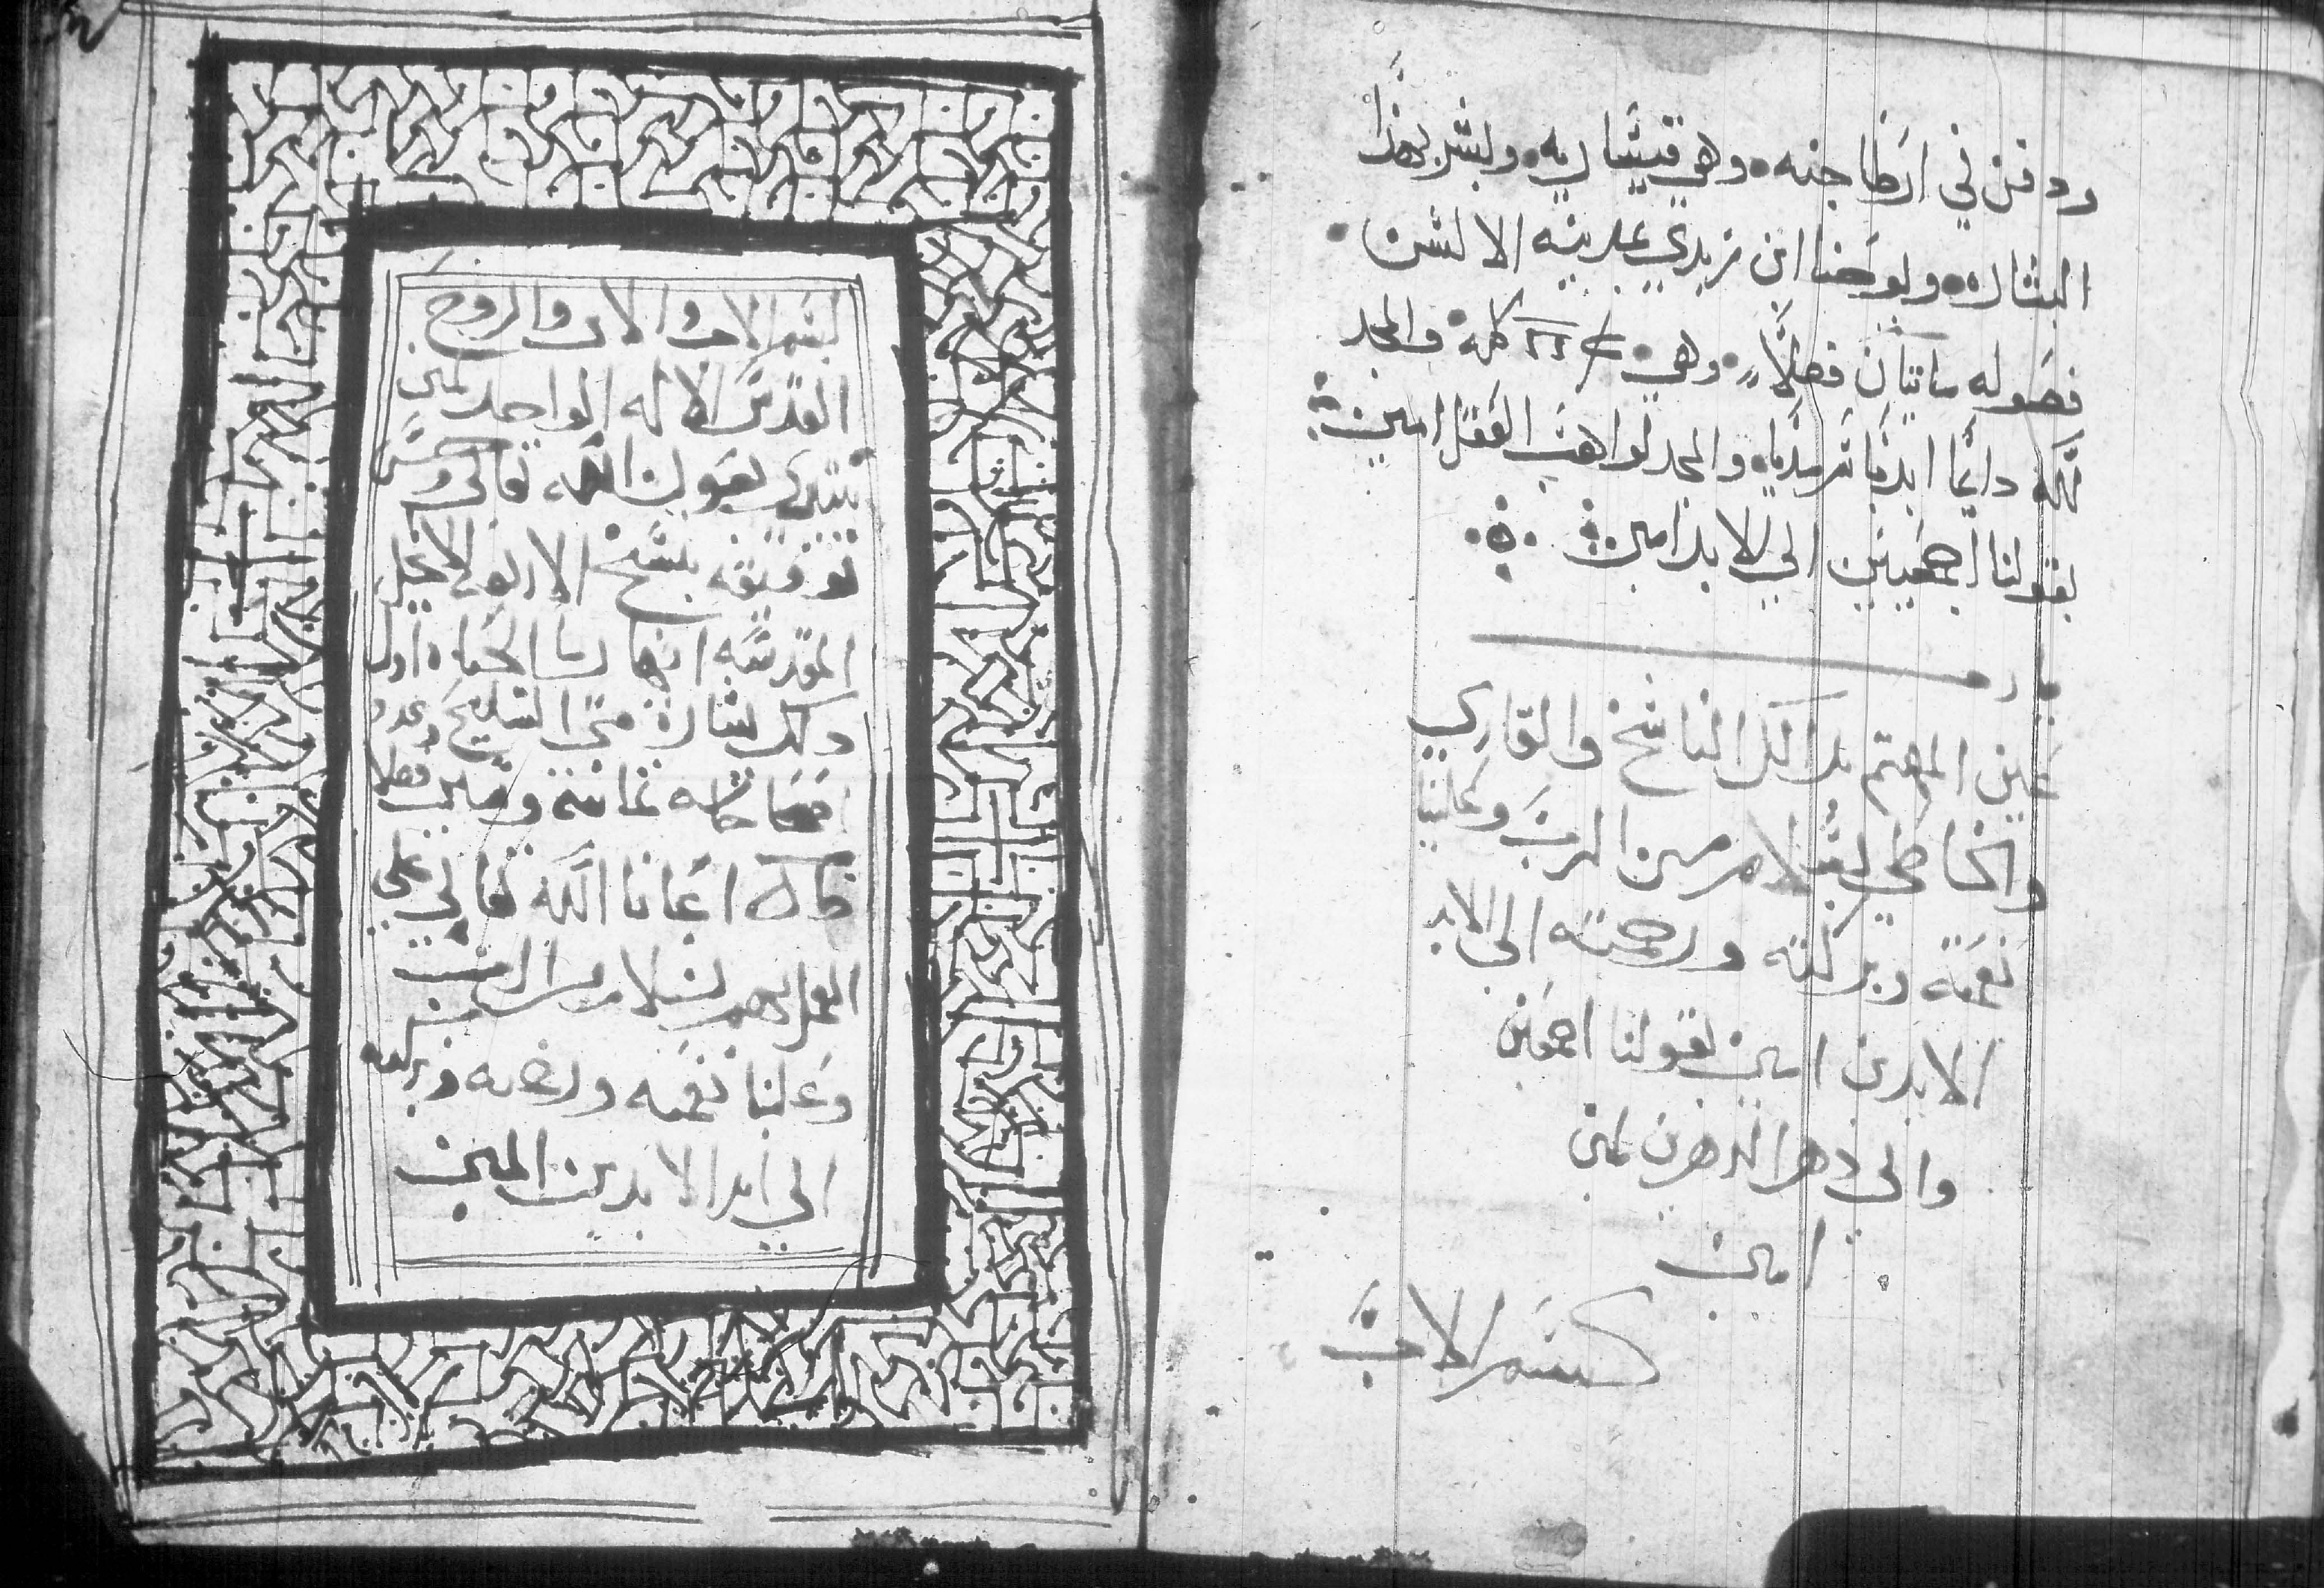 ودفن في ارطاجنه وهي قيشاريه وبشر بهذا
البشاره ويوحنا ابن زبدي بمدينه الا لشن
فصوله ماتتان فصلاً وهي كلمة والمجد
لله دايمًا ابديا سرمديا والمجد لواهب العقل امين
بقولنا اجمعين الي الابد امين
عين المهتم بدالك الناسخ والقاري
والخاطي بسلام من الرب وعلينا
نعمته وبركته ورحمته الى الابد
الابدين امين بقولنا اجمعين
والي دهر الدهرين امين
امين
بسم الاب
بسم الاب والابن والروح
القدس الاله الواحد امين
نبتدي بعون الله تعالى وحسن
توفيقه بنسخ الاربعه الاناجيل
المقدسه انهار ما الحياه اول
ذلك بشارة متى السليح وعدد
اصحاحاته ثمانية وستين فصلا
كمال اعاننا الله تعالي علي
العمل بهم بسلام من الرب
وعلينا نعمته ورحمته وبركته
الي ابد الابدين امين